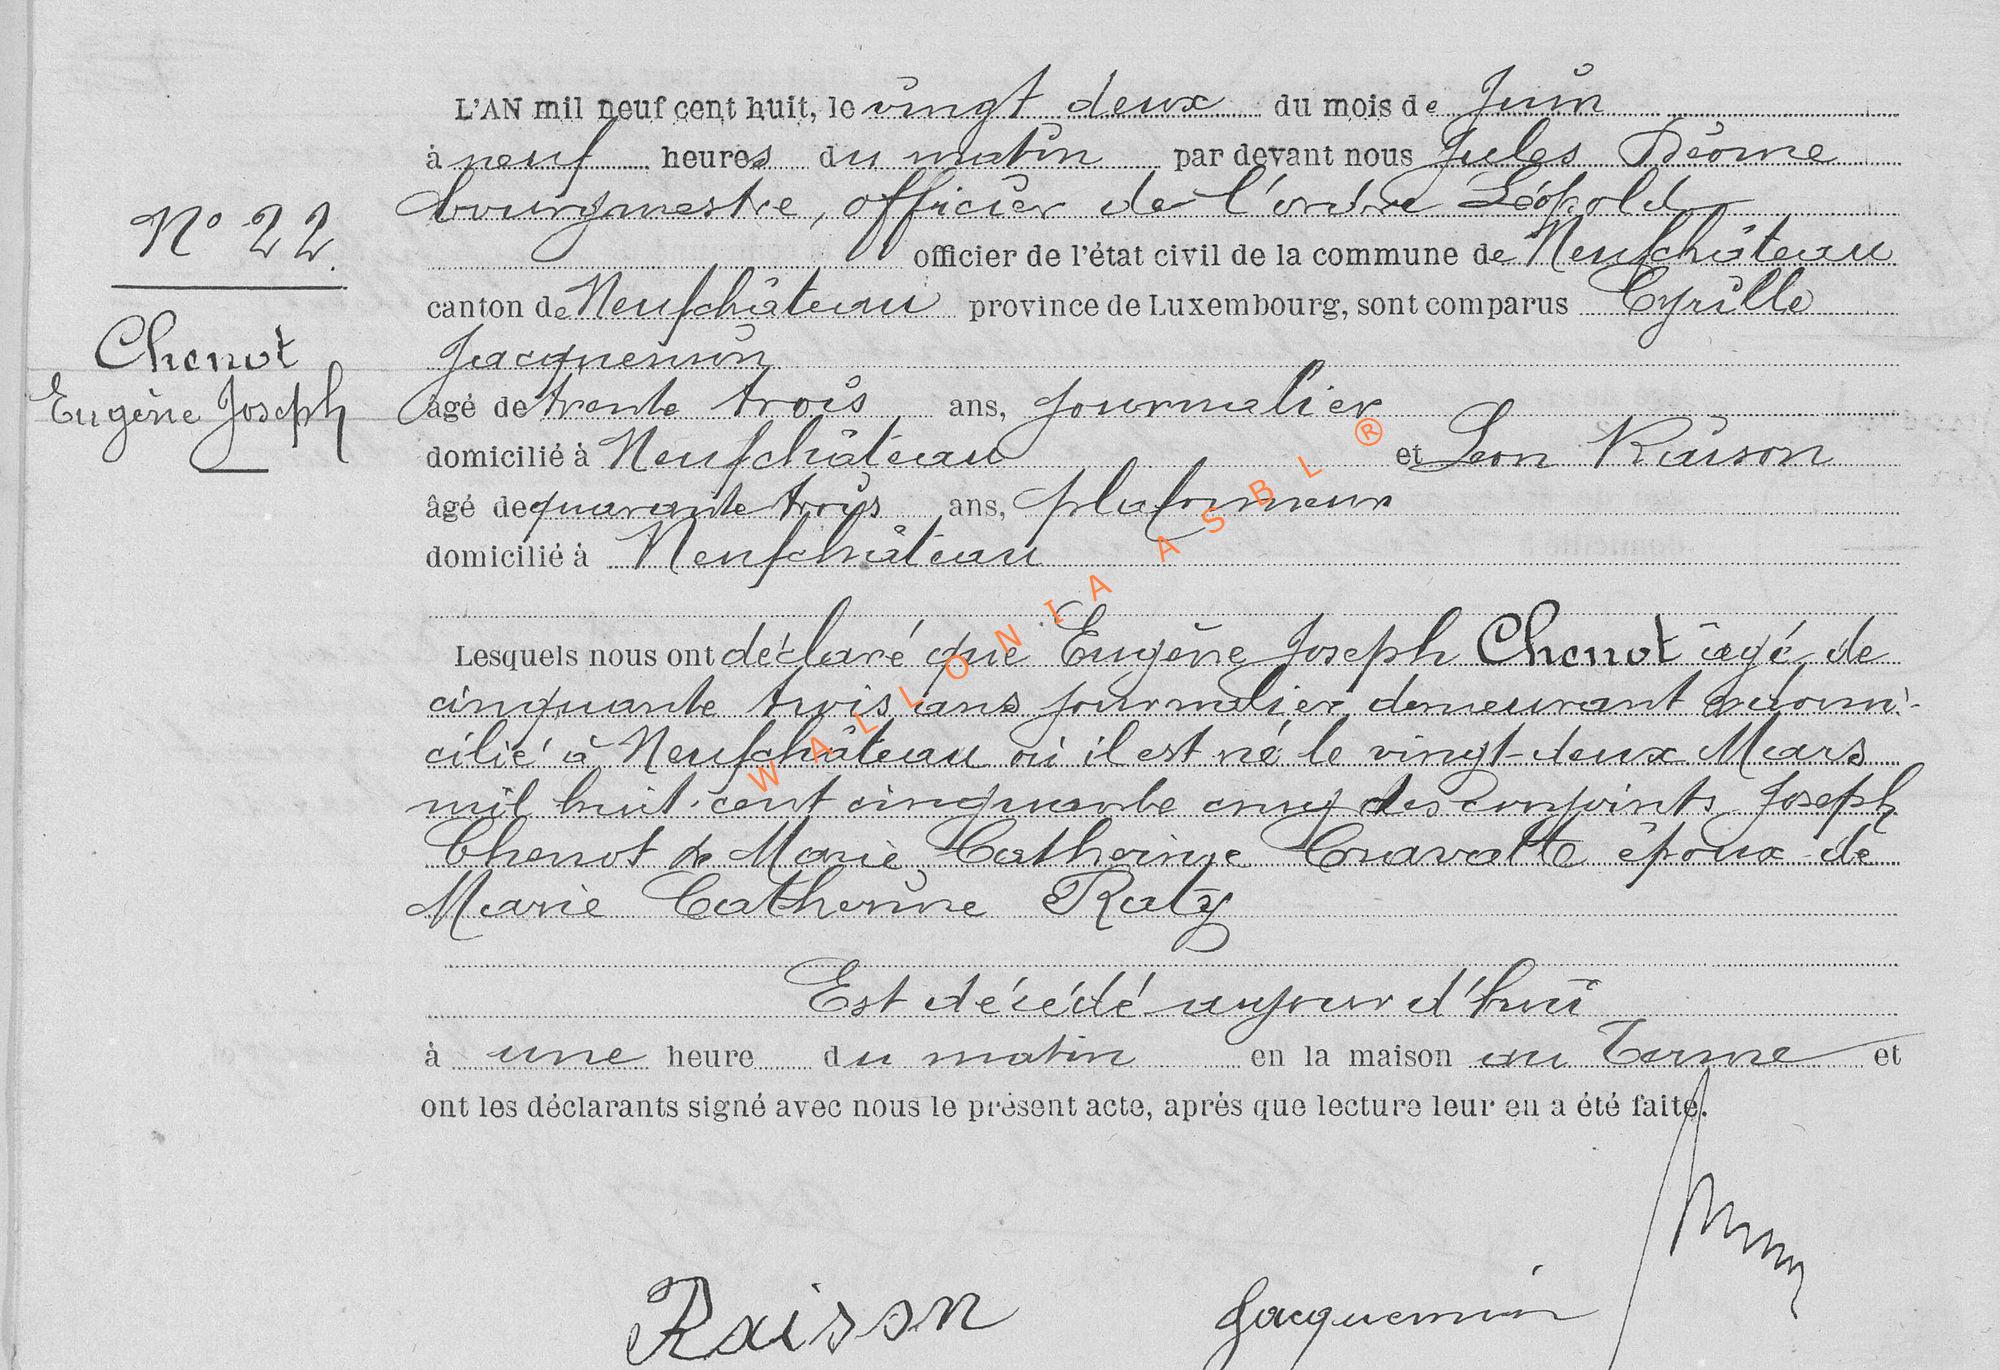 L'AN mil neuf cent huit, le vingt deux du mois de Juin
à neuf heures du matin par devant nous Jules
bourgmestre, officier de l'ordre Léopold
officier de l'état civil de la commune de Neufchâteau
N° 22.
canton de Neufchâteau province de Luxembourg, sont comparus Cyrille
Jacquemin
Chenot
Eugène Joseph
âgé de trente trois ans, journalier
domicilié à Neufchâteau et Leon Raison
âgé de quarante trois ans, plafonneur
domicilié à Neufchâteau
Lesquels nous ont déclaré que Eugène Joseph Chenot âgé de
cinquante trois ans journalier demeurant & domi-
cilié à Neufchâteau où il est né le vingt-deux Mars
mil huit-cent cinquante cinq des conjoints Joseph
Chenot & Marie Catherine Cravatte époux de
Marie Catherine Raty
Est décédé aujour d'hui
à une heure du matin en la maison au Terme et
ont les déclarants signé avec nous le présent acte, après que lecture leur en a été faite.
Raison Jacquemin
WALLONIA ASBL ®